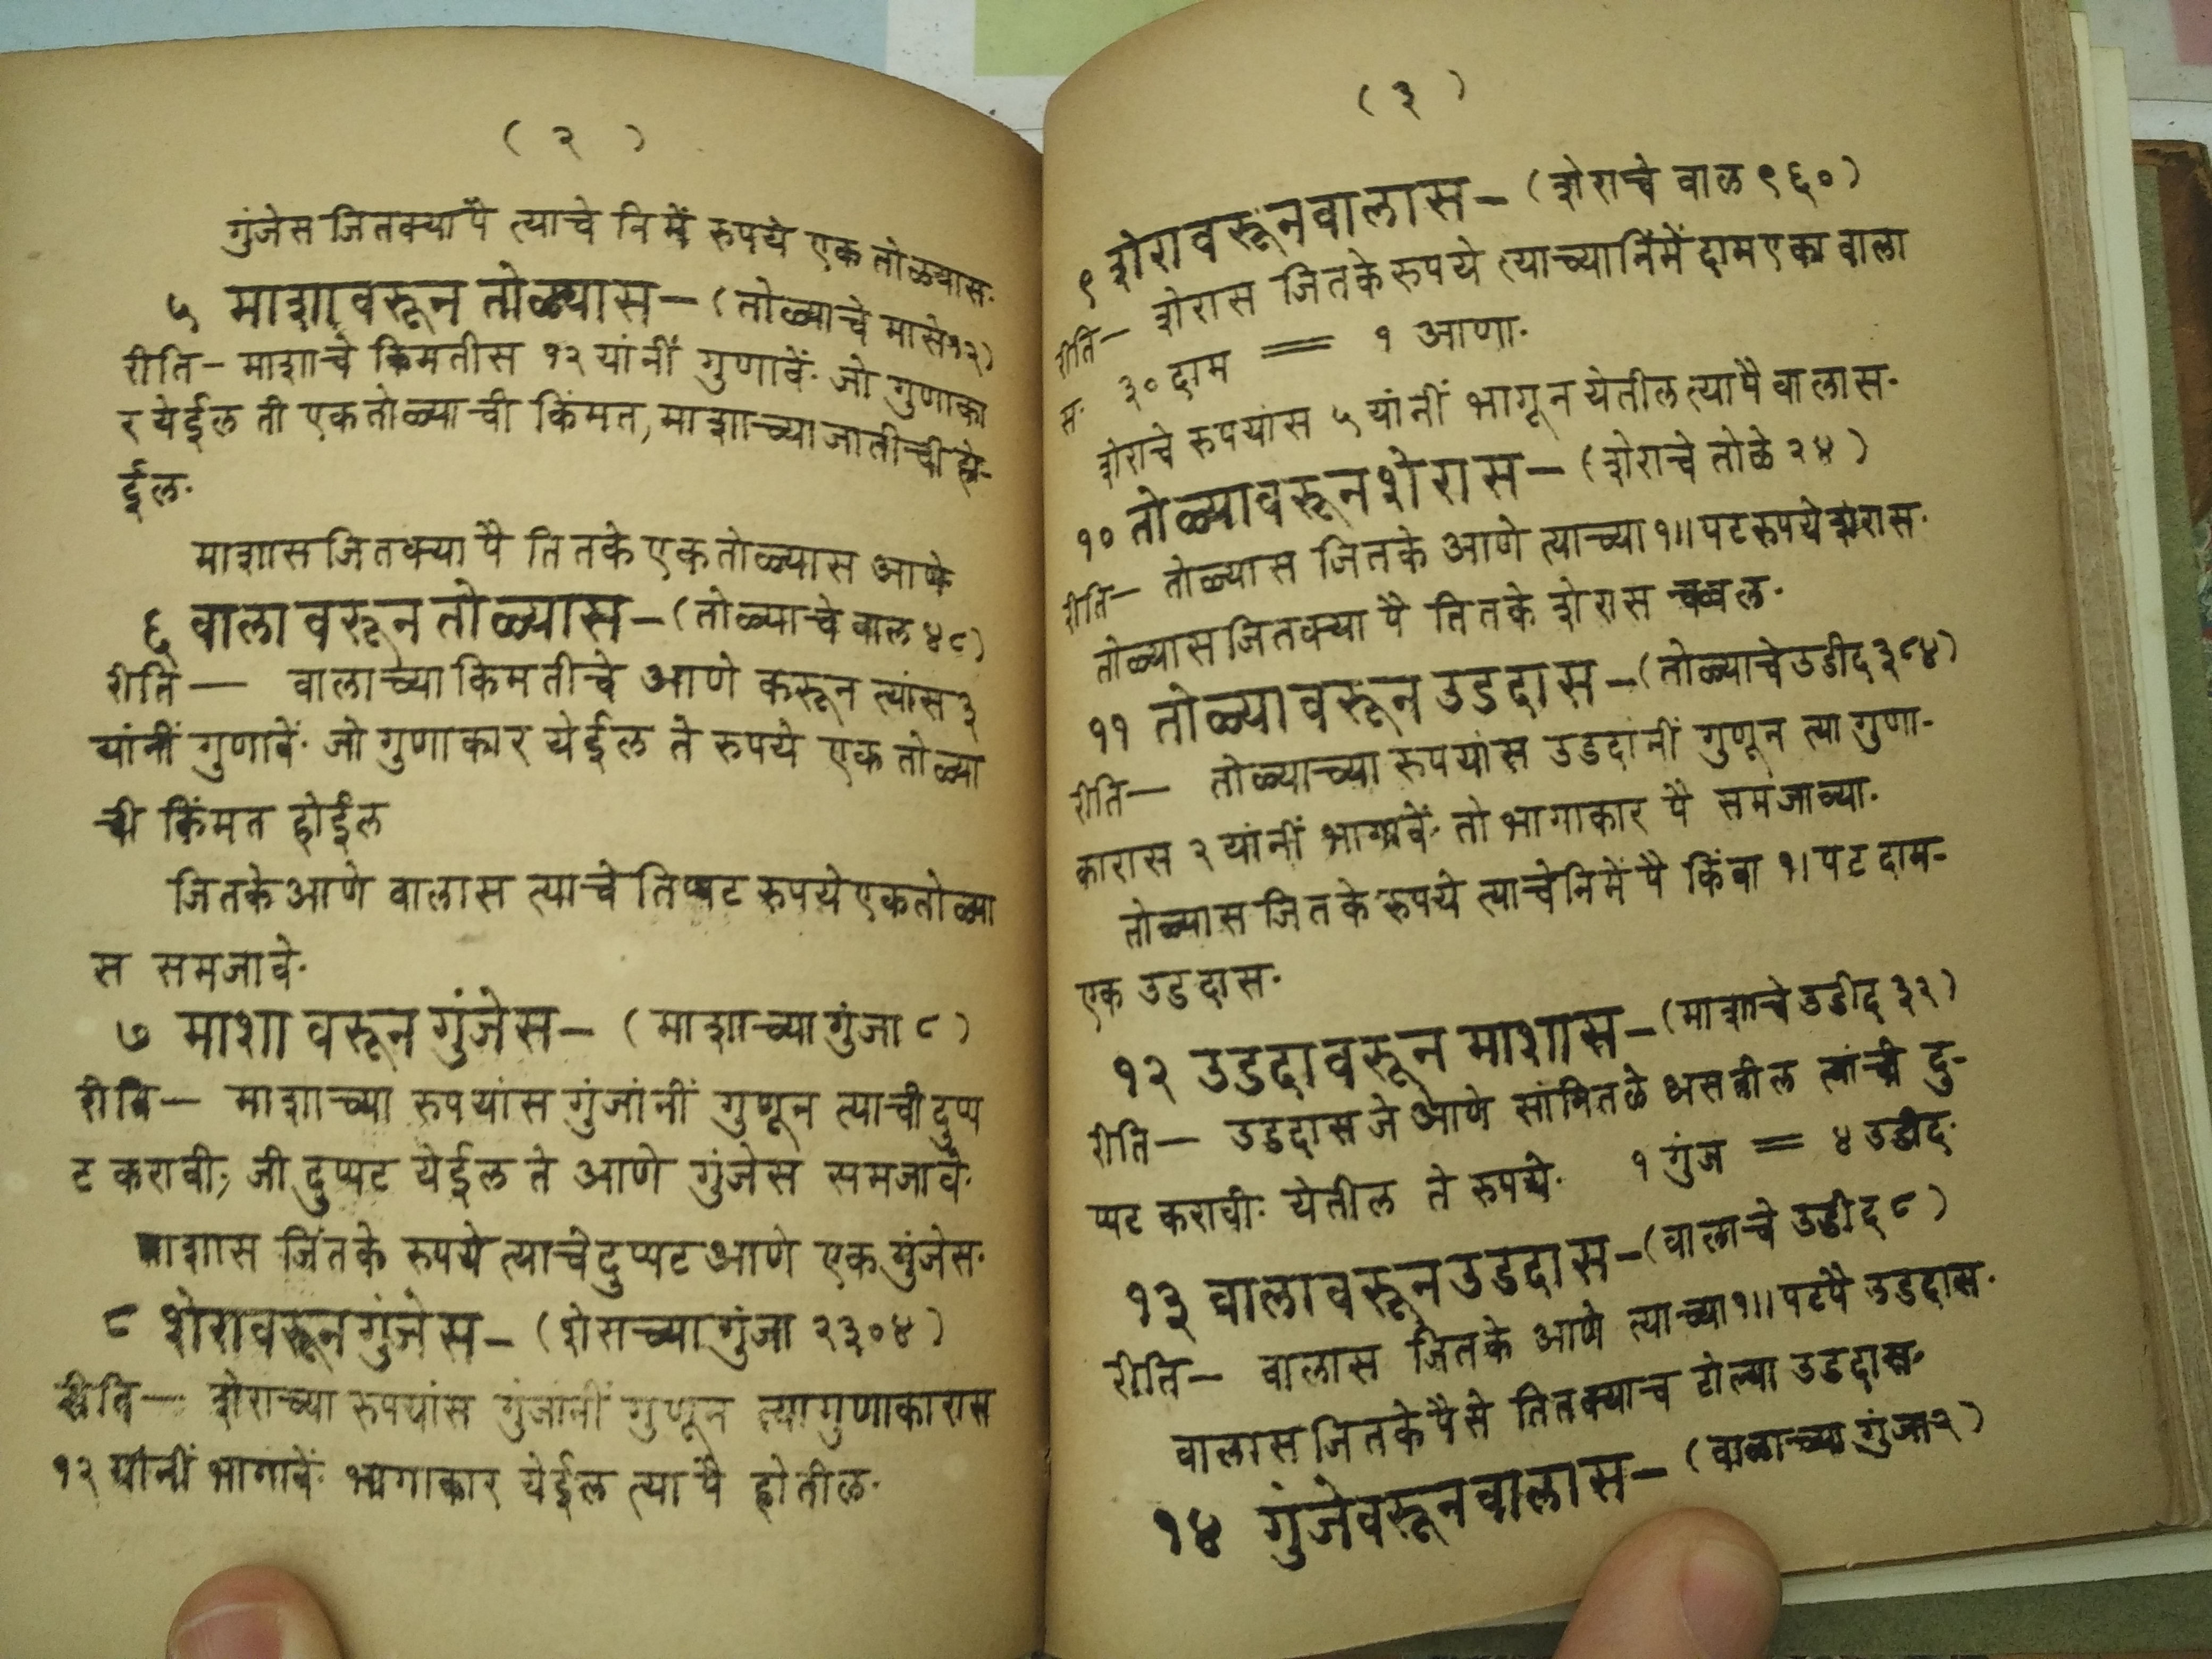 ( २ )
गुंजेस जितक्या पै त्याचे निमें रुपये एक तोळ्यास.
५ माशावरून तोळ्यास — (तोळ्याचे मासे १२)
रीति — माशाचे किमतीस १२ यांनीं गुणावें. जो गुणाका
र येईल ती एक तोळ्याची किंमत, माशाच्या जातीची हो-
ईल.
माशास जितक्या पै तितके एक तोळ्यास आणे
६ वालावरून तोळ्यास — (तोळ्याचे वाल ४८)
रीति — वालाच्या किमतीचे आणे करून त्यांस ३
यांनीं गुणावें. जो गुणाकार येईल ते रुपये एक तोळ्या
ची किंमत होईल
जितके आणे वालास त्याचे तिप्पट रुपये एक तोळ्या
स समजावे.
७ माशा वरून गुंजेस — (माशाच्या गुंजा ८)
रीति — माशाच्या रुपयांस गुंजांनीं गुणून त्याची दुप्प
ट करावी; जी दुप्पट येईल ते आणे गुंजेस समजावे.
माशास जितके रुपये त्याचे दुप्पट आणे एक गुंजेस.
८ शेरावरून गुंजेस — (शेराच्या गुंजा २३०४)
रीति — शेराच्या रुपयांस गुंजांनीं गुणून त्या गुणाकारास
१२ यांनीं भागावें. भागाकार येईल त्या पै होतील.
( ३ )
९ शेरावरून वालास — (शेराचे वाल ९६०)
रीति — शेरास जितके रुपये त्याच्या निमें दाम एका वाला
स. ३० दाम = १ आणा.
शेराचे रुपयांस ५ यांनीं भागून येतील त्या पै वालास.
१० तोळ्यावरून शेरास — (शेराचे तोळे २४)
रीति — तोळ्यास जितके आणे त्याच्या १॥ पट रुपये शेरास.
तोळ्यास जितक्या पै तितके शेरास चवल.
११ तोळ्यावरून उडदास — (तोळ्याचे उडीद ३८४)
रीति — तोळ्याच्या रुपयांस उडदांनीं गुणून त्या गुणा-
कारास २ यांनीं भागावें. तो भागाकार पै समजाव्या.
तोळ्यास जितके रुपये त्याचे निमें पै किंवा १। पट दाम-
एक उडदास.
१२ उडदावरून माशास — (माशाचे उडीद ३२)
रीति — उडदास जे आणे सांगितले असतील त्यांची दु-
प्पट करावी: येतील ते रुपये. १ गुंज = ४ उडीद.
१३ वालावरून उडदास — (वालाचे उडीद ८)
रीति — वालास जितके आणे त्याच्या १॥ पट पै उडदास.
वालास जितके पैसे तितक्याच टोल्या उडदास.
१४ गुंजेवरून वालास — (वालाच्या गुंजा २)